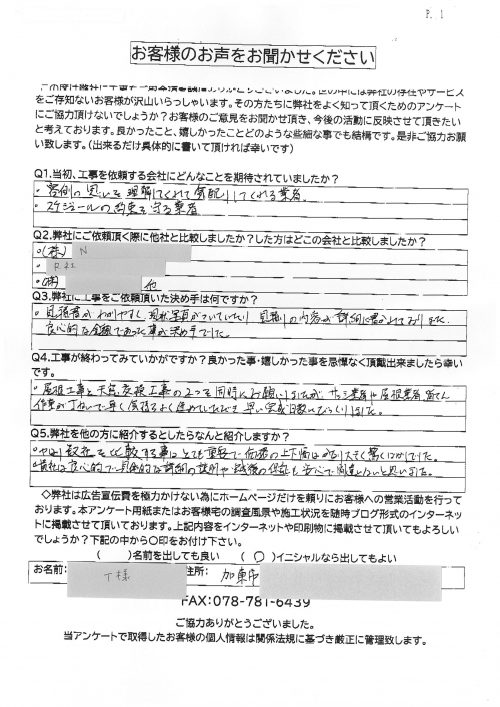 P. 1
お客様のお声をお聞かせください
をご存知ないお客様が沢山いらっしゃいます。その方たちに弊社をよく知って頂くためのアンケート
にご協力頂けないでしょうか？お客様のご意見をお聞かせ頂き、今後の活動に反映させて頂きたい
と考えております。良かったこと、嬉しかったことどのような些細な事でも結構です。是非ご協力お願
い致します。（出来るだけ具体的に書いて頂ければ幸いです）
Q1.当初、工事を依頼する会社にどんなことを期待されていましたか？
・客側の思いを理解してくれて気配りしてくれる業者。
・スケジュールの約束を守る業者
Q2.弊社にご依頼頂く際に他社と比較しましたか？した方はどこの会社と比較しましたか？
・(株) N
・R社
・(株) 他
Q3.弊社に工事をご依頼頂いた決め手は何ですか？
・見積書がわかりやすく、現状写真がついていたり 見積りの内容が詳細に書かれておりました。
良心的な金額であった事が決め手でした。
Q4.工事が終わってみていかがですか？良かった事・嬉しかった事を忌憚なく頂戴出来ましたら幸い
です。
・屋根工事と 工事の2つを同時にお願いしましたが、サッシ業者や屋根業者皆さん
作業が丁ねいで早く 進めていただき 早い完成日数にびっくりしました。
Q5.弊社を他の方に紹介するとしたらなんと紹介しますか？
・やはり数社を比較する事はとても重要で価格の上下幅はかなり大きく驚くばかりでした。
・貴社は良心的で具体的な詳細の説明や 保証も 安心で間違いないと思いました。
◇弊社は広告宣伝費を極力かけない為にホームページだけを頼りにお客様への営業活動を行って
おります。本アンケート用紙またはお客様宅の調査風景や施工状況を随時ブログ形式のインターネッ
トに掲載させて頂いております。上記内容をインターネットや印刷物に掲載させて頂いてもよろしい
でしょうか？下記の中から〇印をお付け下さい。
（ ）名前を出しても良い （〇）イニシャルなら出してもよい
お名前： T様 住所： 加東市
FAX:078-781-6439
ご協力ありがとうございました。
当アンケートで取得したお客様の個人情報は関係法規に基づき厳正に管理致します。